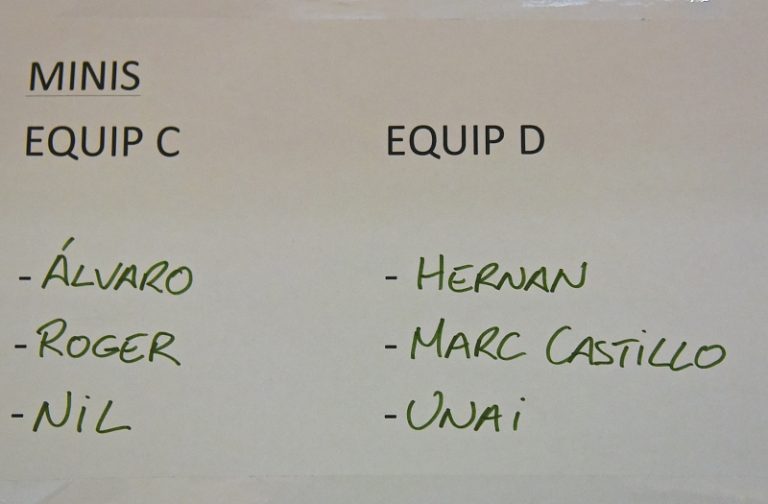 MINIS
EQUIP C
EQUIP D
- ÁLVARO
- HERNAN
- ROGER
- MARC CASTiLLO
- NiL
- UNAi